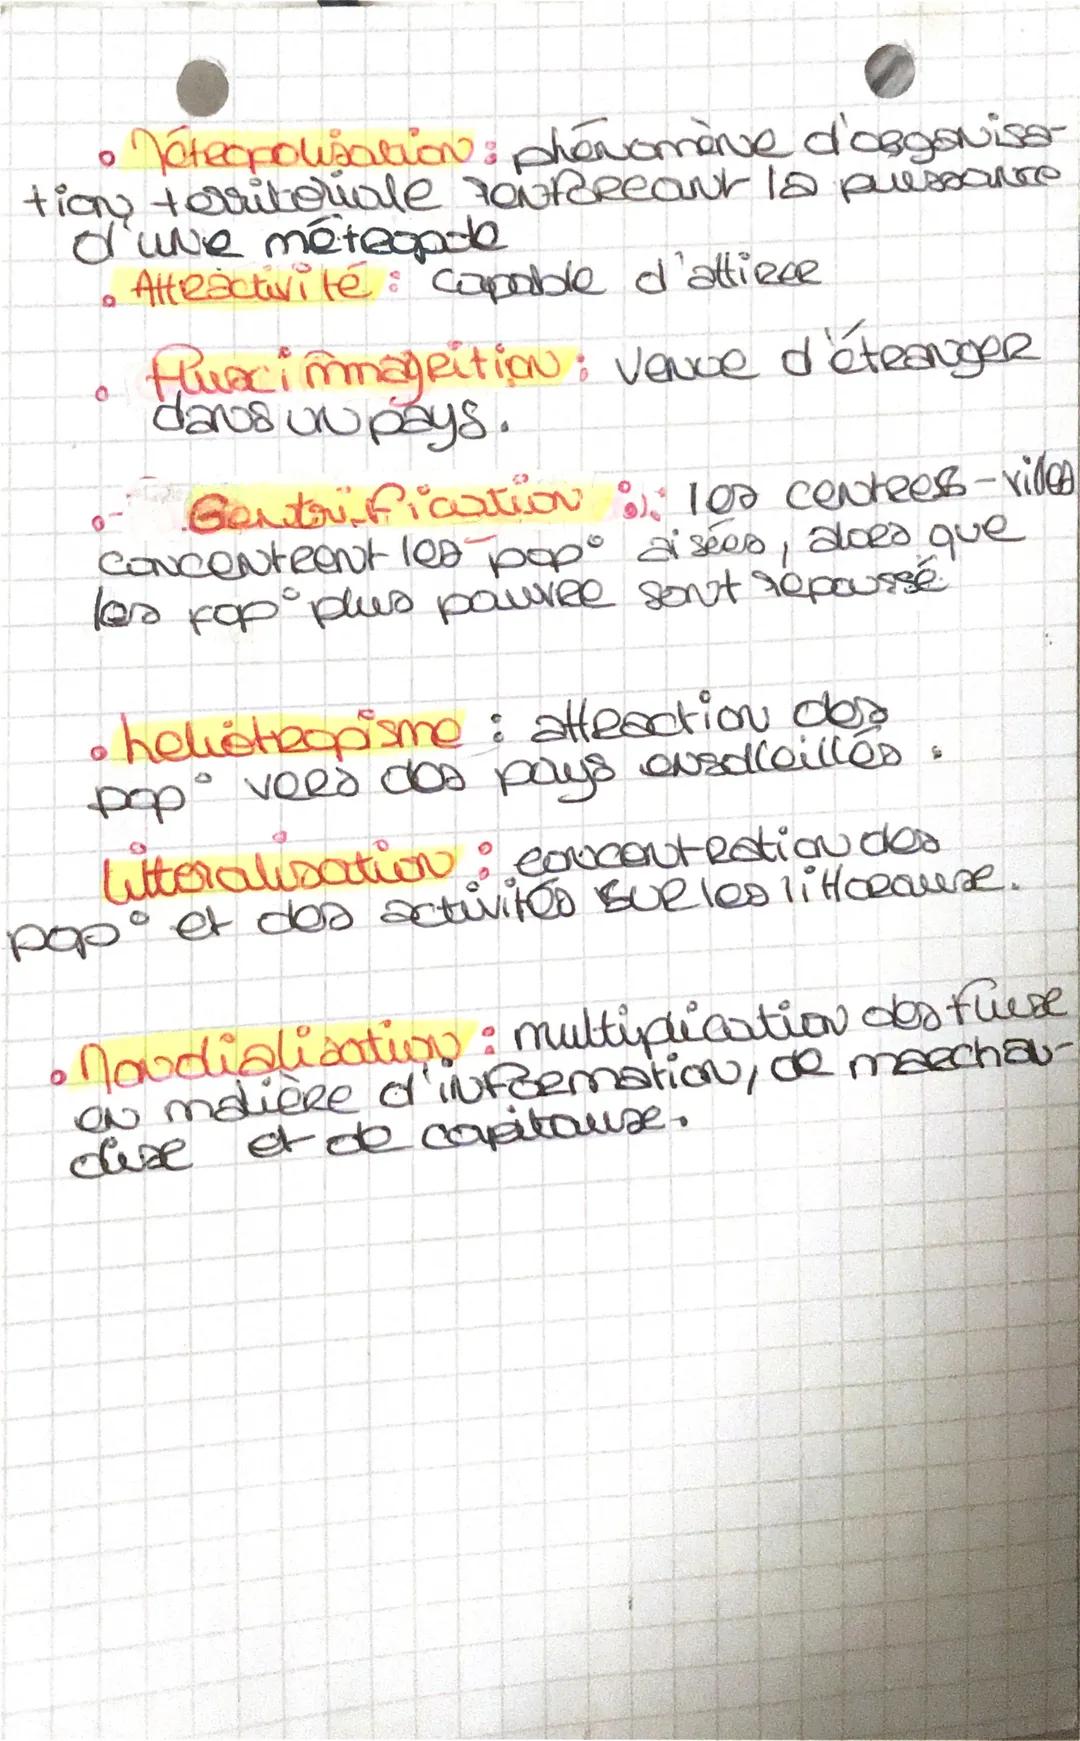 • Métropolisation : phénomène d'organisa-
tion territoriale renforçant la puissance
d'une métropole
• Attractivité : capable d'attirer
• flux immagrition : venue d'étranger
dans un pays.
• Gentrification : les centres-villes
concentrent les pop° aisées, alors que
les pop° plus pauvre sont repoussé
• heliotropisme : attraction des
pop° vers des pays ensolleillés.
• Littoralisation : concentration des
pop° et des activités sur les littoraux.
• Mondialisation : multiplication des flux
en matière d'information, de marchan-
dise et de capitaux.